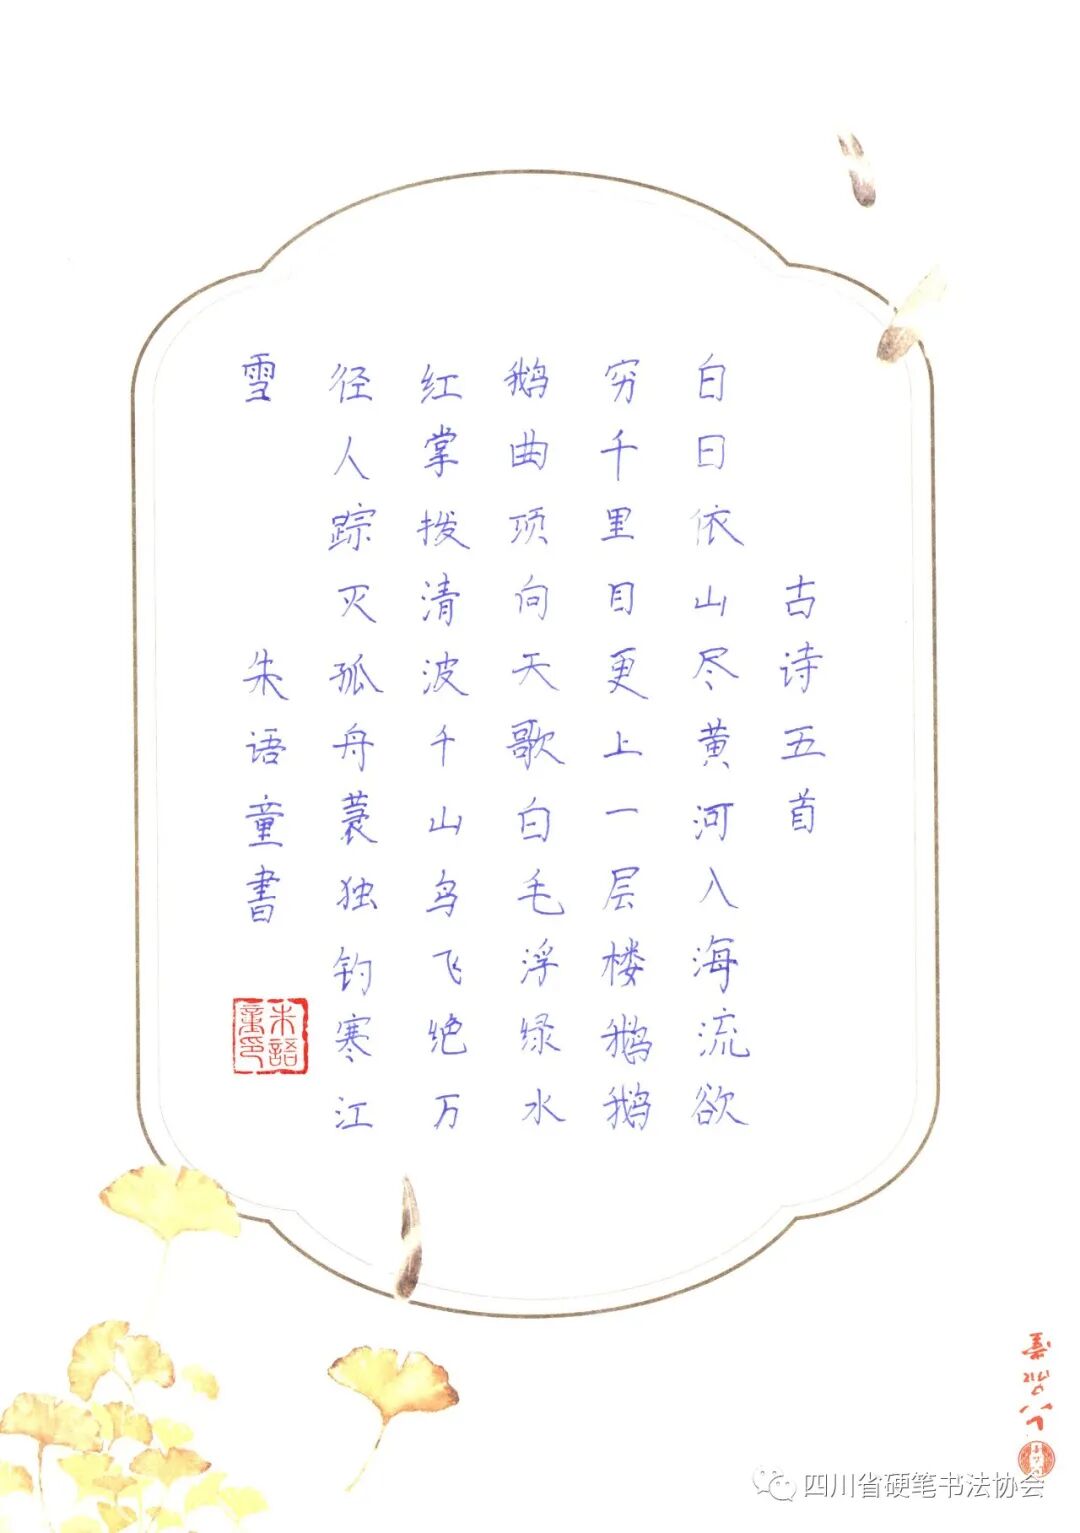 古诗五首
白日依山尽黄河入海流欲
穷千里目更上一层楼鹅鹅
鹅曲项向天歌白毛浮绿水
红掌拨清波千山鸟飞绝万
径人踪灭孤舟蓑独钓寒江
雪
朱语童書
朱語
童印
四川省硬笔书法协会